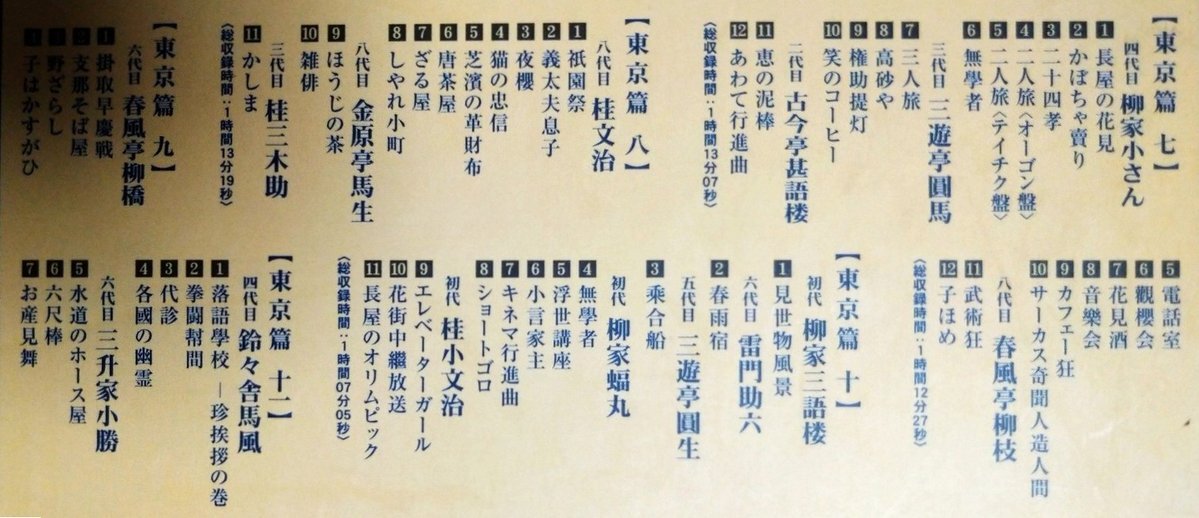 【東京篇 七】
四代目 柳家小さん
1 長屋の花見
2 かぼちゃ賣り
3 二十四孝
4 二人旅〈オーゴン盤〉
5 二人旅〈テイチク盤〉
6 無學者
三代目 三遊亭圓馬
7 三人旅
8 高砂や
9 権助提灯
10 笑のコーヒー
二代目 古今亭甚語楼
11 恵の泥棒
12 あわて行進曲
〈総収録時間：1時間13分07秒〉
【東京篇 八】
八代目 桂文治
1 祇園祭
2 義太夫息子
3 夜櫻
4 猫の忠信
5 芝濱の革財布
6 唐茶屋
7 ざる屋
8 しやれ小町
八代目 金原亭馬生
9 ほうじの茶
10 雑俳
三代目 桂三木助
11 かしま
〈総収録時間：1時間13分19秒〉
【東京篇 九】
六代目 春風亭柳橋
1 掛取早慶戦
2 支那そば屋
3 野ざらし
4 子はかすがひ
5 電話室
6 觀櫻会
7 花見酒
8 音樂会
9 カフェー狂
10 サーカス奇聞人造人間
八代目 春風亭柳枝
11 武術狂
12 子ほめ
〈総収録時間：1時間12分27秒〉
【東京篇 十】
初代 柳家三語楼
1 見世物風景
六代目 雷門助六
2 春雨宿
五代目 三遊亭圓生
3 乘合船
初代 柳家蝠丸
4 無學者
5 浮世講座
6 小言家主
7 キネマ行進曲
8 ショートゴロ
初代 桂小文治
9 エレベーターガール
10 花街中繼放送
11 長屋のオリムピック
〈総収録時間：1時間07分05秒〉
【東京篇 十一】
四代目 鈴々舎馬風
1 落語學校 ―珍挨拶の巻
2 拳闘幇間
3 代診
4 各國の幽霊
六代目 三升家小勝
5 水道のホース屋
6 六尺棒
7 お産見舞